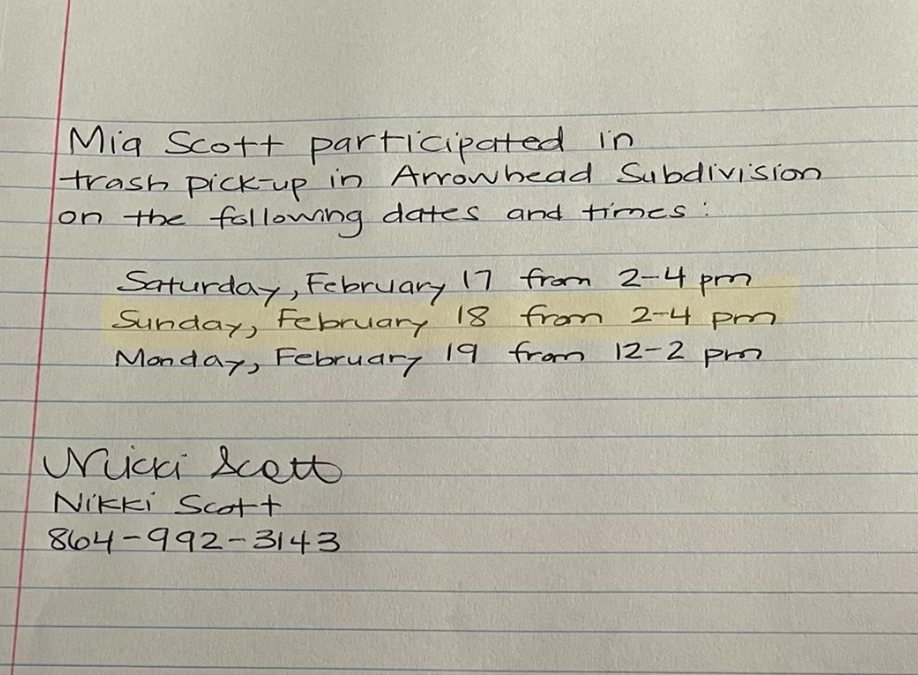 Mia Scott participated in
trash pick-up in Arrowhead Subdivision
on the following dates and times:
Saturday, February 17 from 2-4 pm
Sunday, February 18 from 2-4 pm
Monday, February 19 from 12-2 pm
Nikki Scott
Nikki Scott
864-992-3143